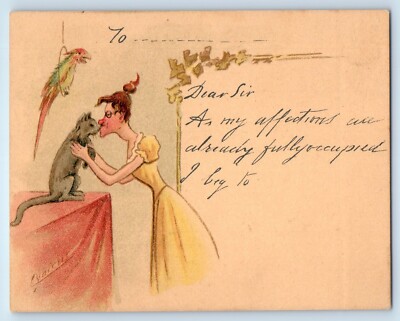 To
Dear Sir
As my affections are
already fully occupied
I beg to